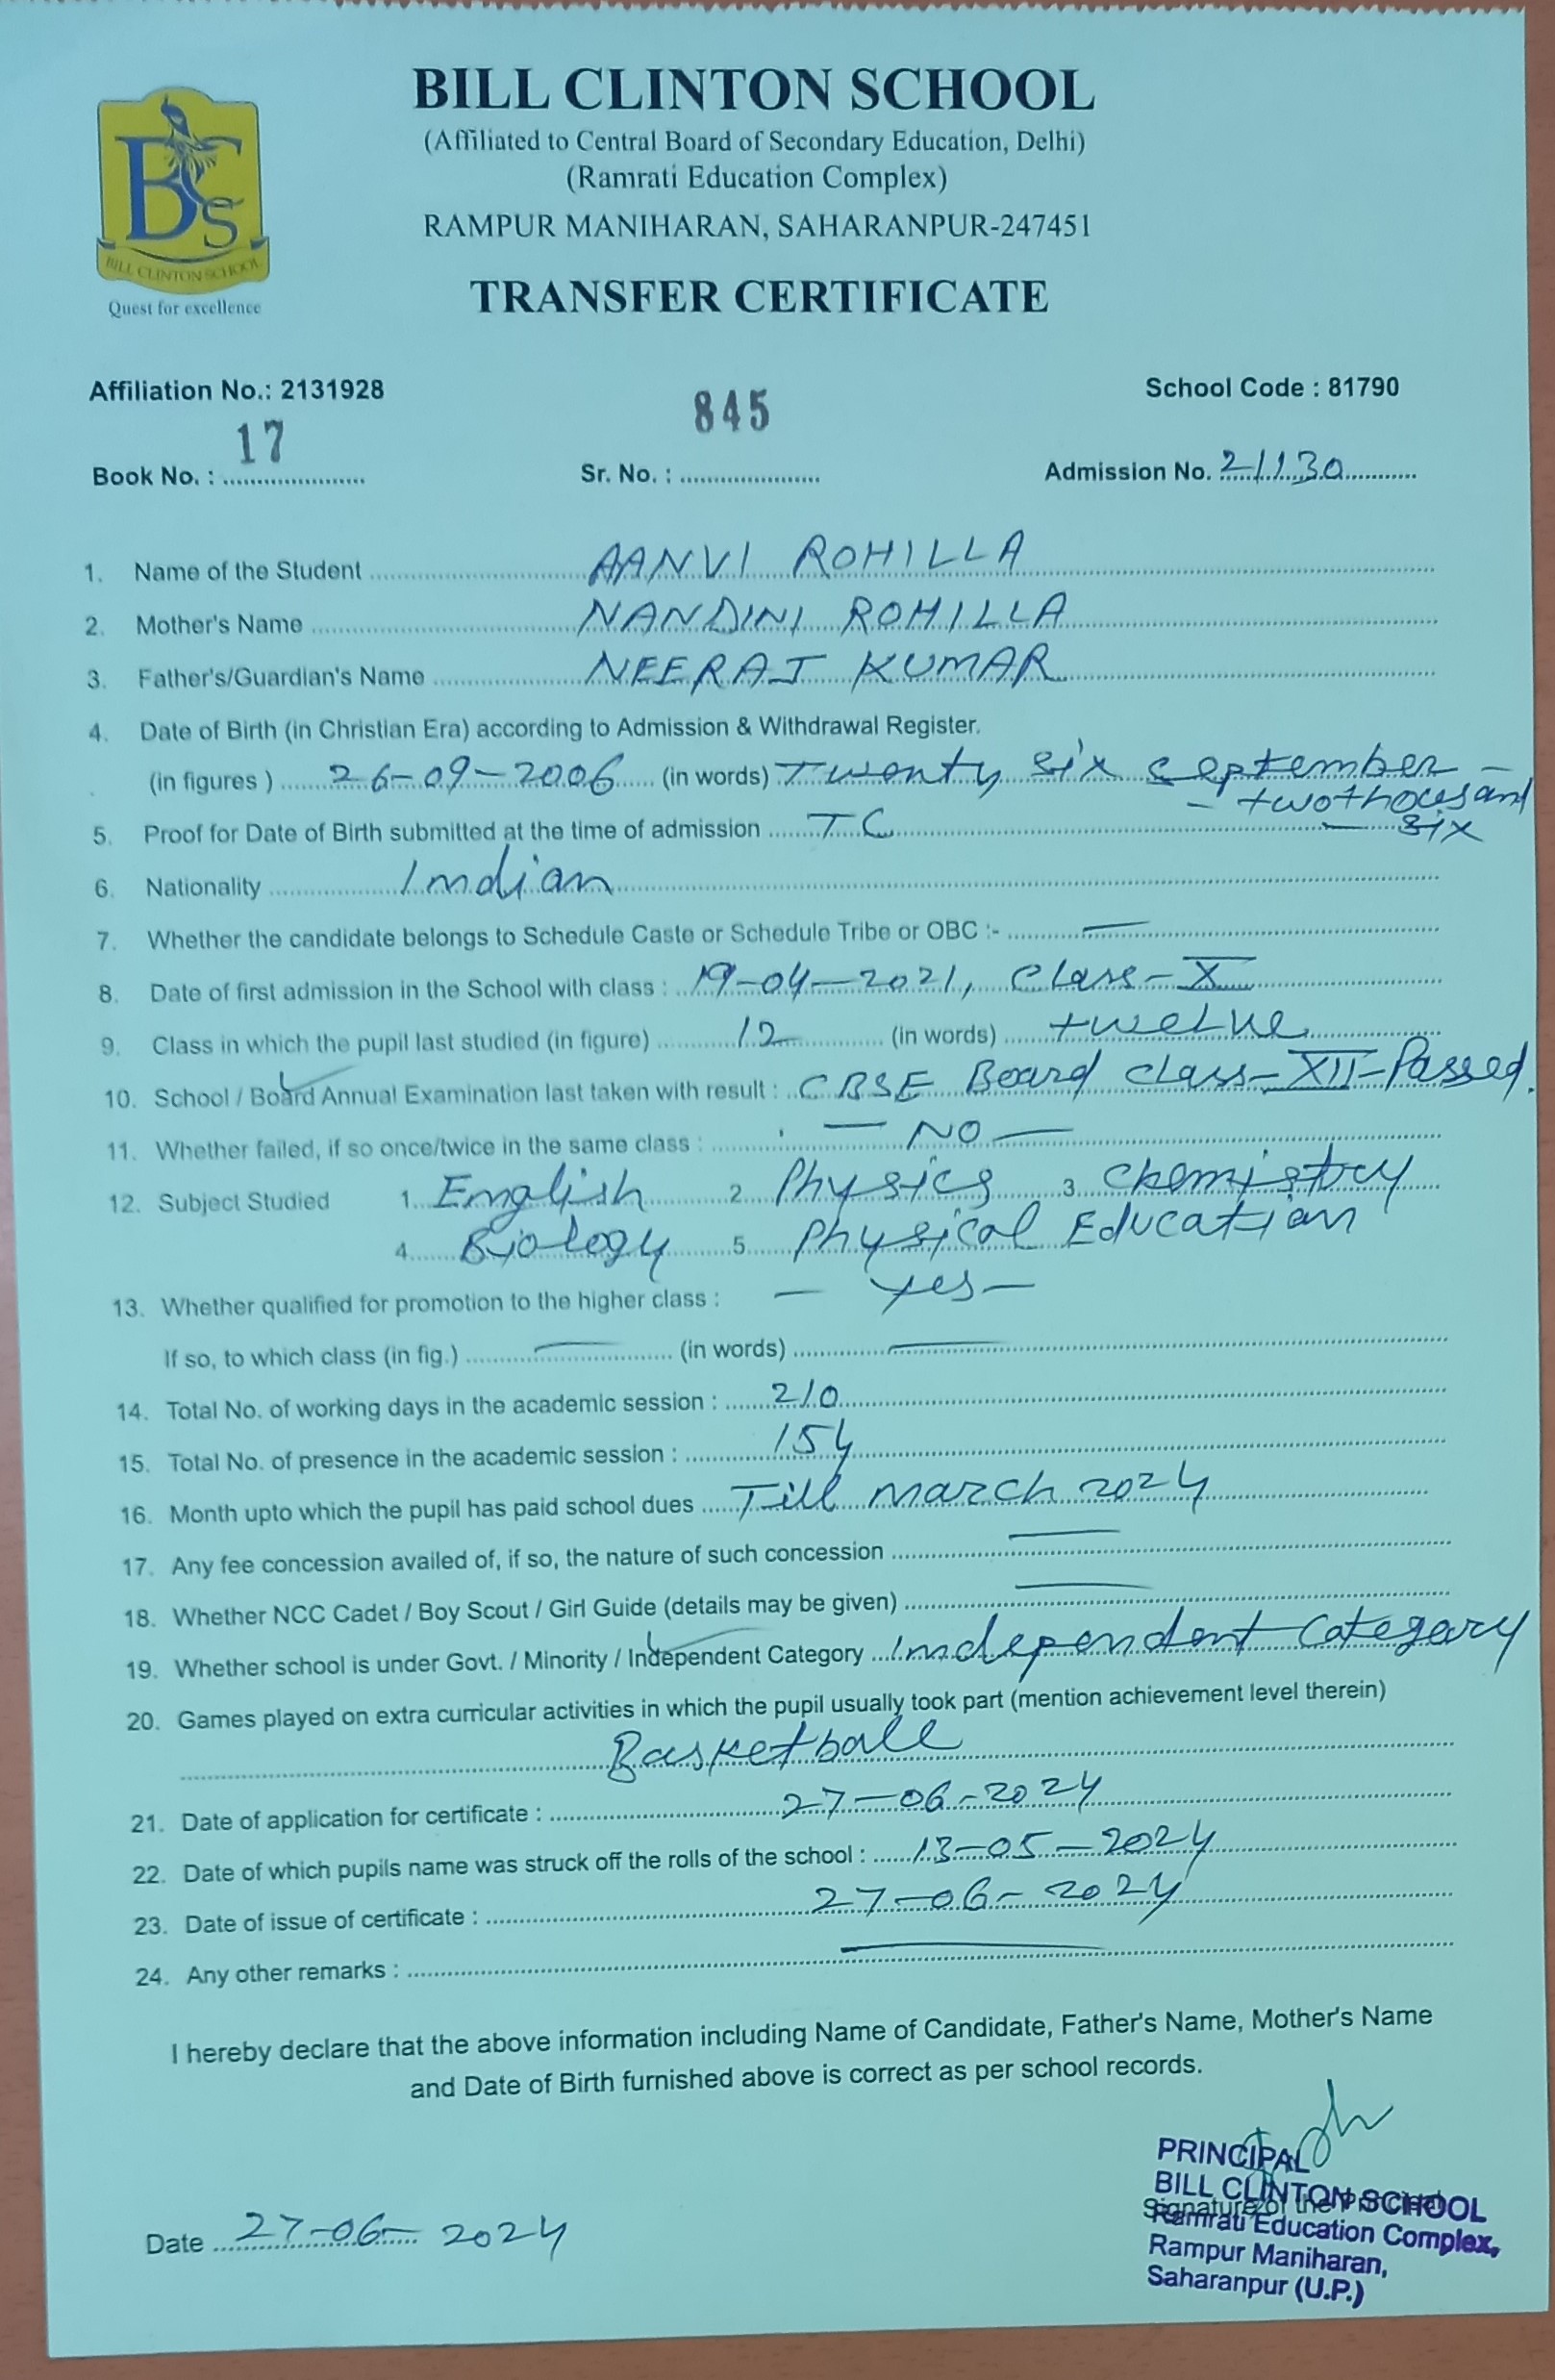 BILL CLINTON SCHOOL
(Affiliated to Central Board of Secondary Education, Delhi)
(Ramrati Education Complex)
RAMPUR MANIHARAN, SAHARANPUR-247451
BCS
BILL CLINTON SCHOOL
Quest for excellence
TRANSFER CERTIFICATE
Affiliation No.: 2131928 School Code : 81790
Book No. : 17 Sr. No. : 845 Admission No. 21130
1. Name of the Student AANVI ROHILLA
2. Mother's Name NANDINI ROHILLA
3. Father's/Guardian's Name NEERAJ KUMAR
4. Date of Birth (in Christian Era) according to Admission & Withdrawal Register.
(in figures ) 26-09-2006 (in words) Twenty six september -
- twothousand
5. Proof for Date of Birth submitted at the time of admission TC — six
6. Nationality Indian
7. Whether the candidate belongs to Schedule Caste or Schedule Tribe or OBC :- —
8. Date of first admission in the School with class : 19-04-2021, Class-X
9. Class in which the pupil last studied (in figure) 12 (in words) twelve
10. School / Board Annual Examination last taken with result : CBSE Board class-XII-Passed.
11. Whether failed, if so once/twice in the same class : — NO —
12. Subject Studied 1. English 2. Physics 3. Chemistry
4. Biology 5. Physical Education
13. Whether qualified for promotion to the higher class : — Yes —
If so, to which class (in fig.) — (in words) —
14. Total No. of working days in the academic session : 210
15. Total No. of presence in the academic session : 154
16. Month upto which the pupil has paid school dues Till March 2024
17. Any fee concession availed of, if so, the nature of such concession —
18. Whether NCC Cadet / Boy Scout / Girl Guide (details may be given) —
19. Whether school is under Govt. / Minority / Independent Category Independent Category
20. Games played on extra curricular activities in which the pupil usually took part (mention achievement level therein)
Basketball
21. Date of application for certificate : 27-06-2024
22. Date of which pupils name was struck off the rolls of the school : 13-05-2024
23. Date of issue of certificate : 27-06-2024
24. Any other remarks : —
I hereby declare that the above information including Name of Candidate, Father's Name, Mother's Name
and Date of Birth furnished above is correct as per school records.
PRINCIPAL
BILL CLINTON SCHOOL
Signature of the
Ramrati Education Complex,
Rampur Maniharan,
Saharanpur (U.P.)
Date 27-06-2024